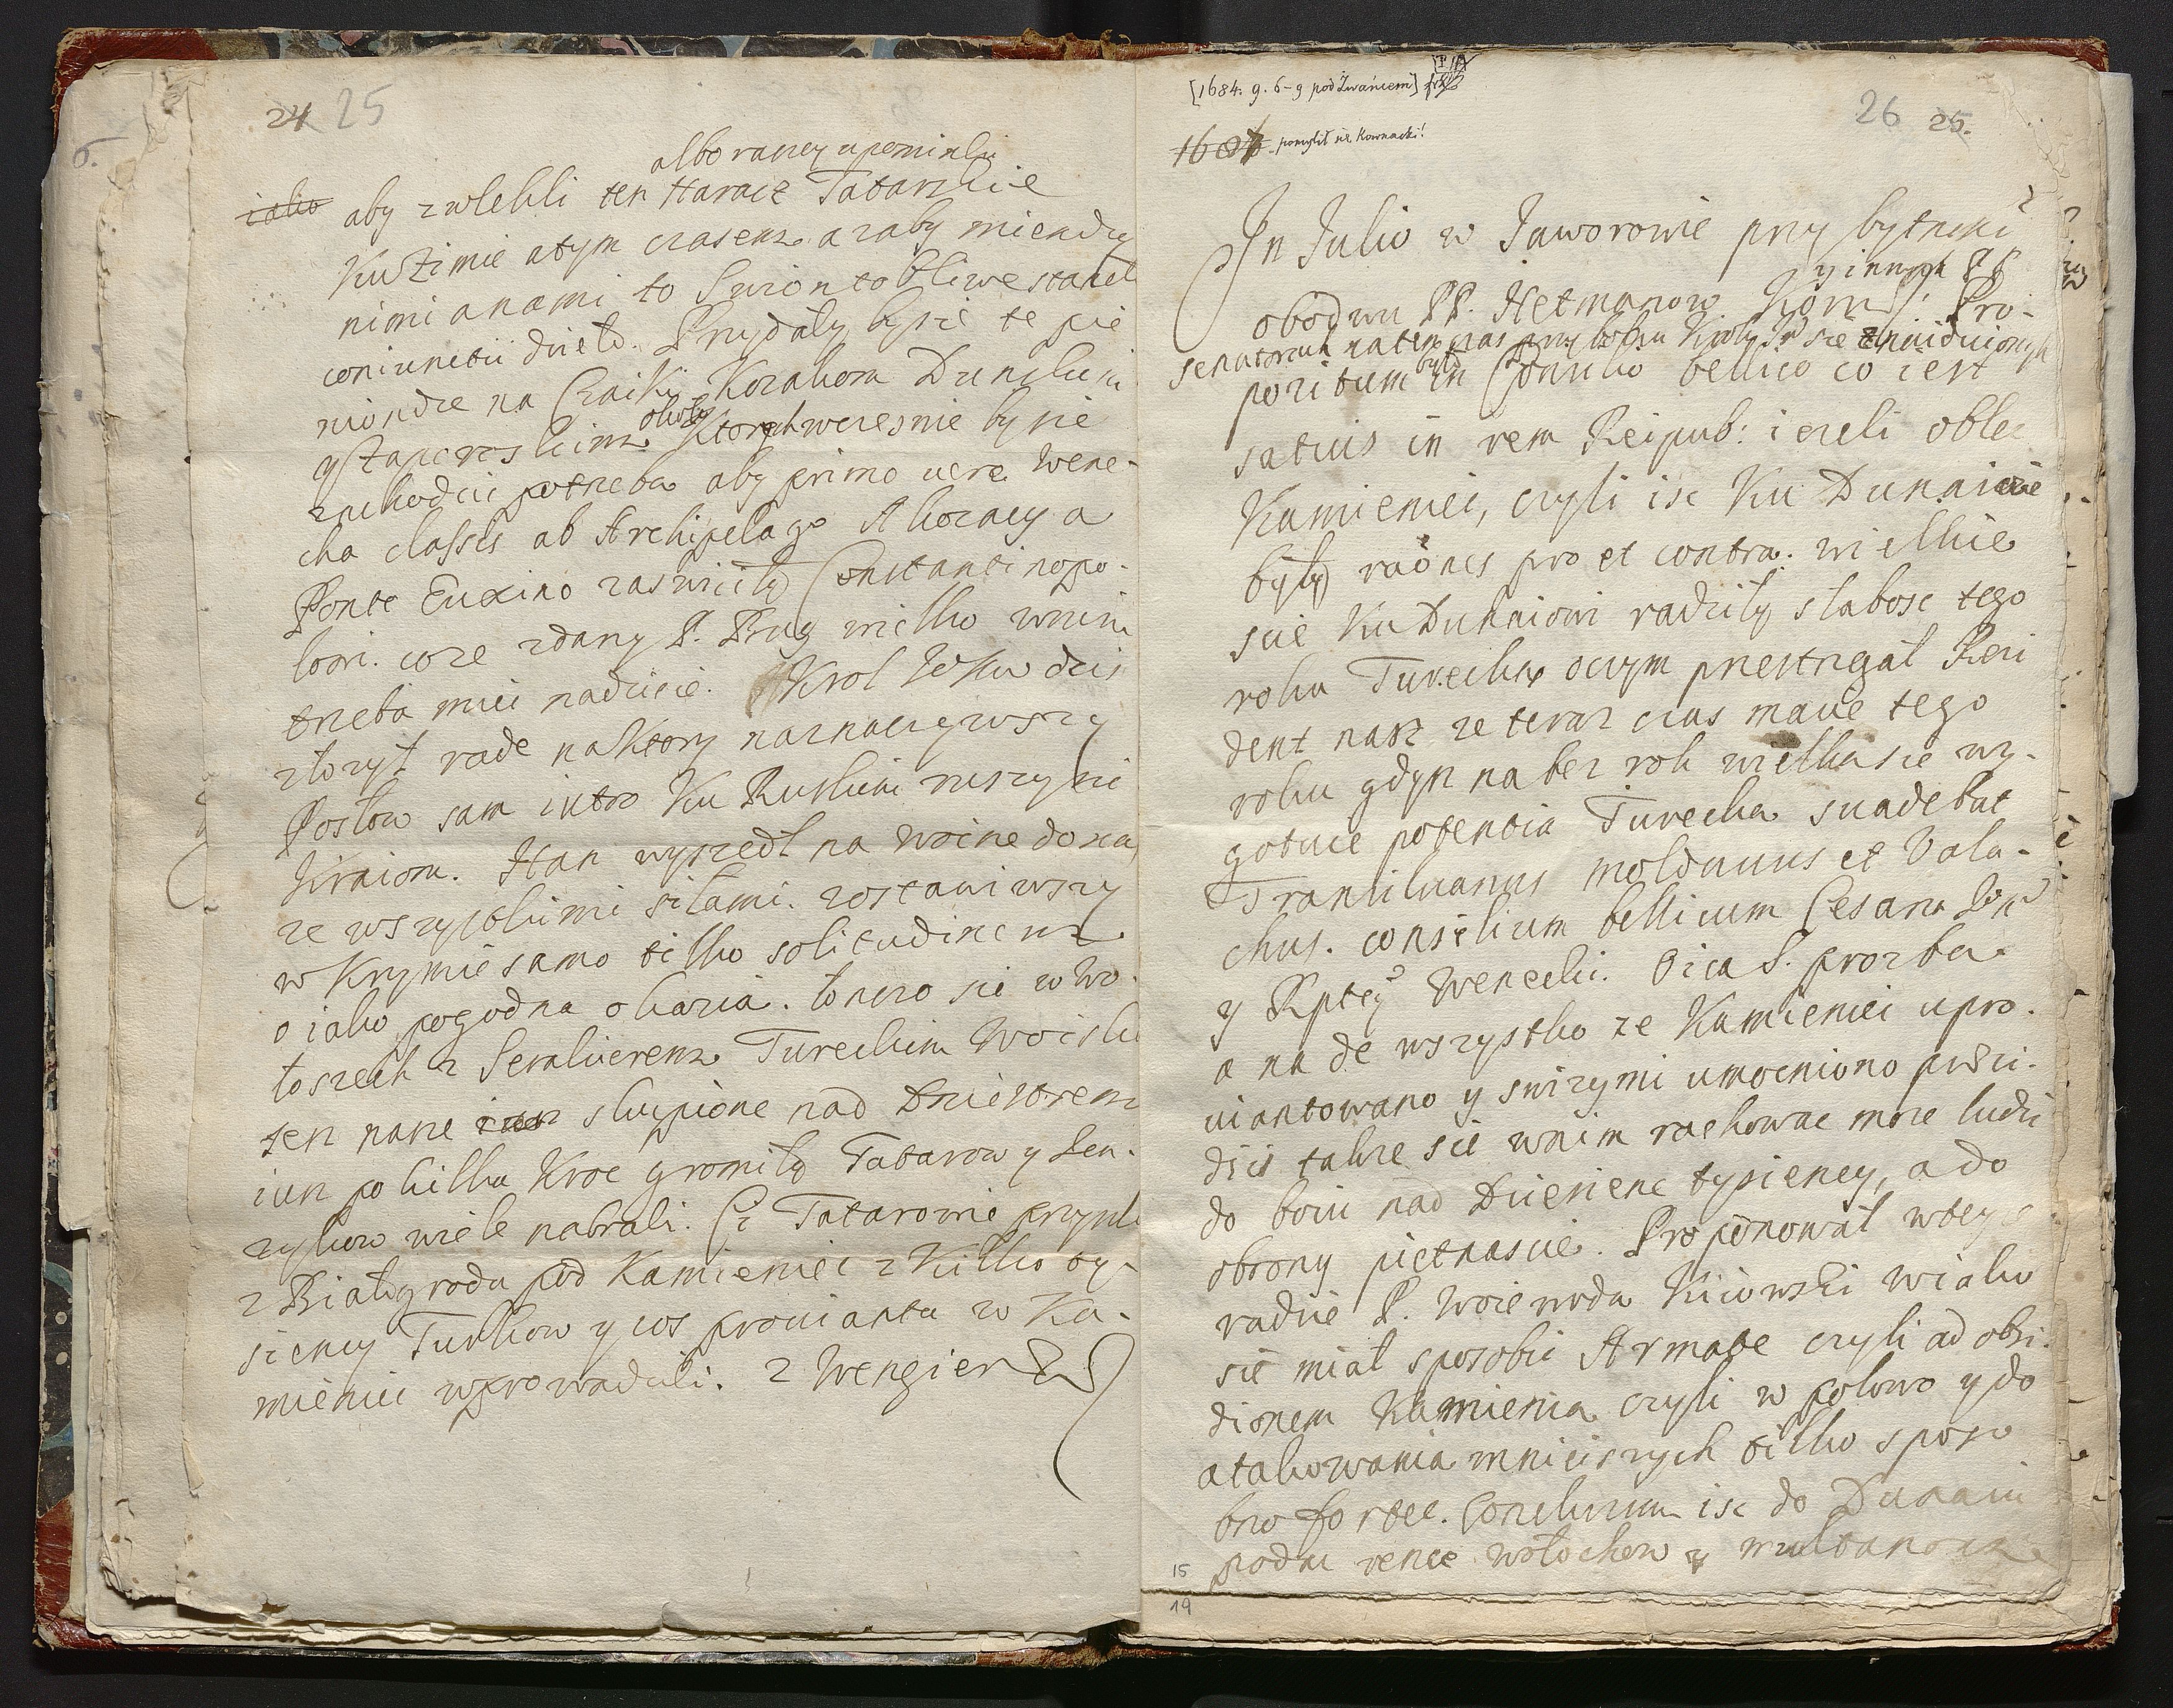 24 25
albo raczey upominki
iako aby zwlekli ten Haracz Tatarskie
Ku Zimie atym czasem azaby miendzy
nimi anami to Swiontobliwe stanelo
coniunctii dzieło. Przydały by sie te pie
niondze na Czaiki Kozakom Dunskim
y Zaporoskim okolo Ktorych wczesnie by sie
zachodzic potrzeba aby primo vere Wene-
cka classis ab Archipelago A Kozacy a
Ponte Euxino zaswiicily Constantinopo-
lowi. coze zdany P. Bug wielko wnim
trzeba miec nadzieie. Krol JeMc dzis
złozył rade naktory naznaczywszy
Posłow sam iutro Ku Ruskim ruszy sie
Kraiom. Han wyszedł na Woine dona
ze wszystkimi siłami. zostawiwszy
w Krymie samo tilko solitudinem
o iako pogodna okazia. łonczo sie w Wo-
łoszech z Seraskierem Tureckim Woisko
zen nasze iusz skupione nad Dniestrem
iusz po kilka Kroc gromiły Tatarow y Jen-
zykow wiele nabrali. Ci Tatarowie przyszli
z Białogrodu pod Kamieniec z Kilko ty-
siency Turkow y cos prowiantu w Ka-
mieniec wprowadzili. z Wengier
[1684. 9. 6-9 pod Żwańcem]
26 25.
1684 pomylił się Kownacki!
In Julio w Jaworowie przy bytnosci
obodwu PP. Hetmanow Kom: y innych PP
senatorow natenczas przy boku Kroly JM sie znaiduionych Pro-
positum było in Consilio bellico co iest
satius in rem Reipub: iezeli oblec
Kamieniec, czyli isc Ku Dunaiowi
były raones pro et contra. wielkie
scie Ku Dunaiowi radziły słabosc tego
roku Turecka oczym przestrzegał Resi
dent nasz ze teraz czas macie tego
roku gdysz na bez rok wielka sie wy-
gotuie potentia Turecka suadebat
Transiluanus Moldauus et Vala-
chus. consilium bellicum Cesarza JeMci
y Rptey Weneckiei. Oica S. prozba
a na de wszystko ze Kamieniec upro-
wiantowano y swizymi umocniono presi-
diis takze sie wnim rachowac moze ludzi
do boiu nad Dziesienc tysiency, a do
obrony pietnascie. Proponował wtey
radzie P. Woiewoda Kiiowski wiako
sie miał sposobic Armate czyli ad obsi-
dionem Kamienca czyli w polowo y do
atakowania mnieiszych tilko sposo
bno fortec. Conclusum isc do Dunaiu
podac rence wołochom y multanom
15
19